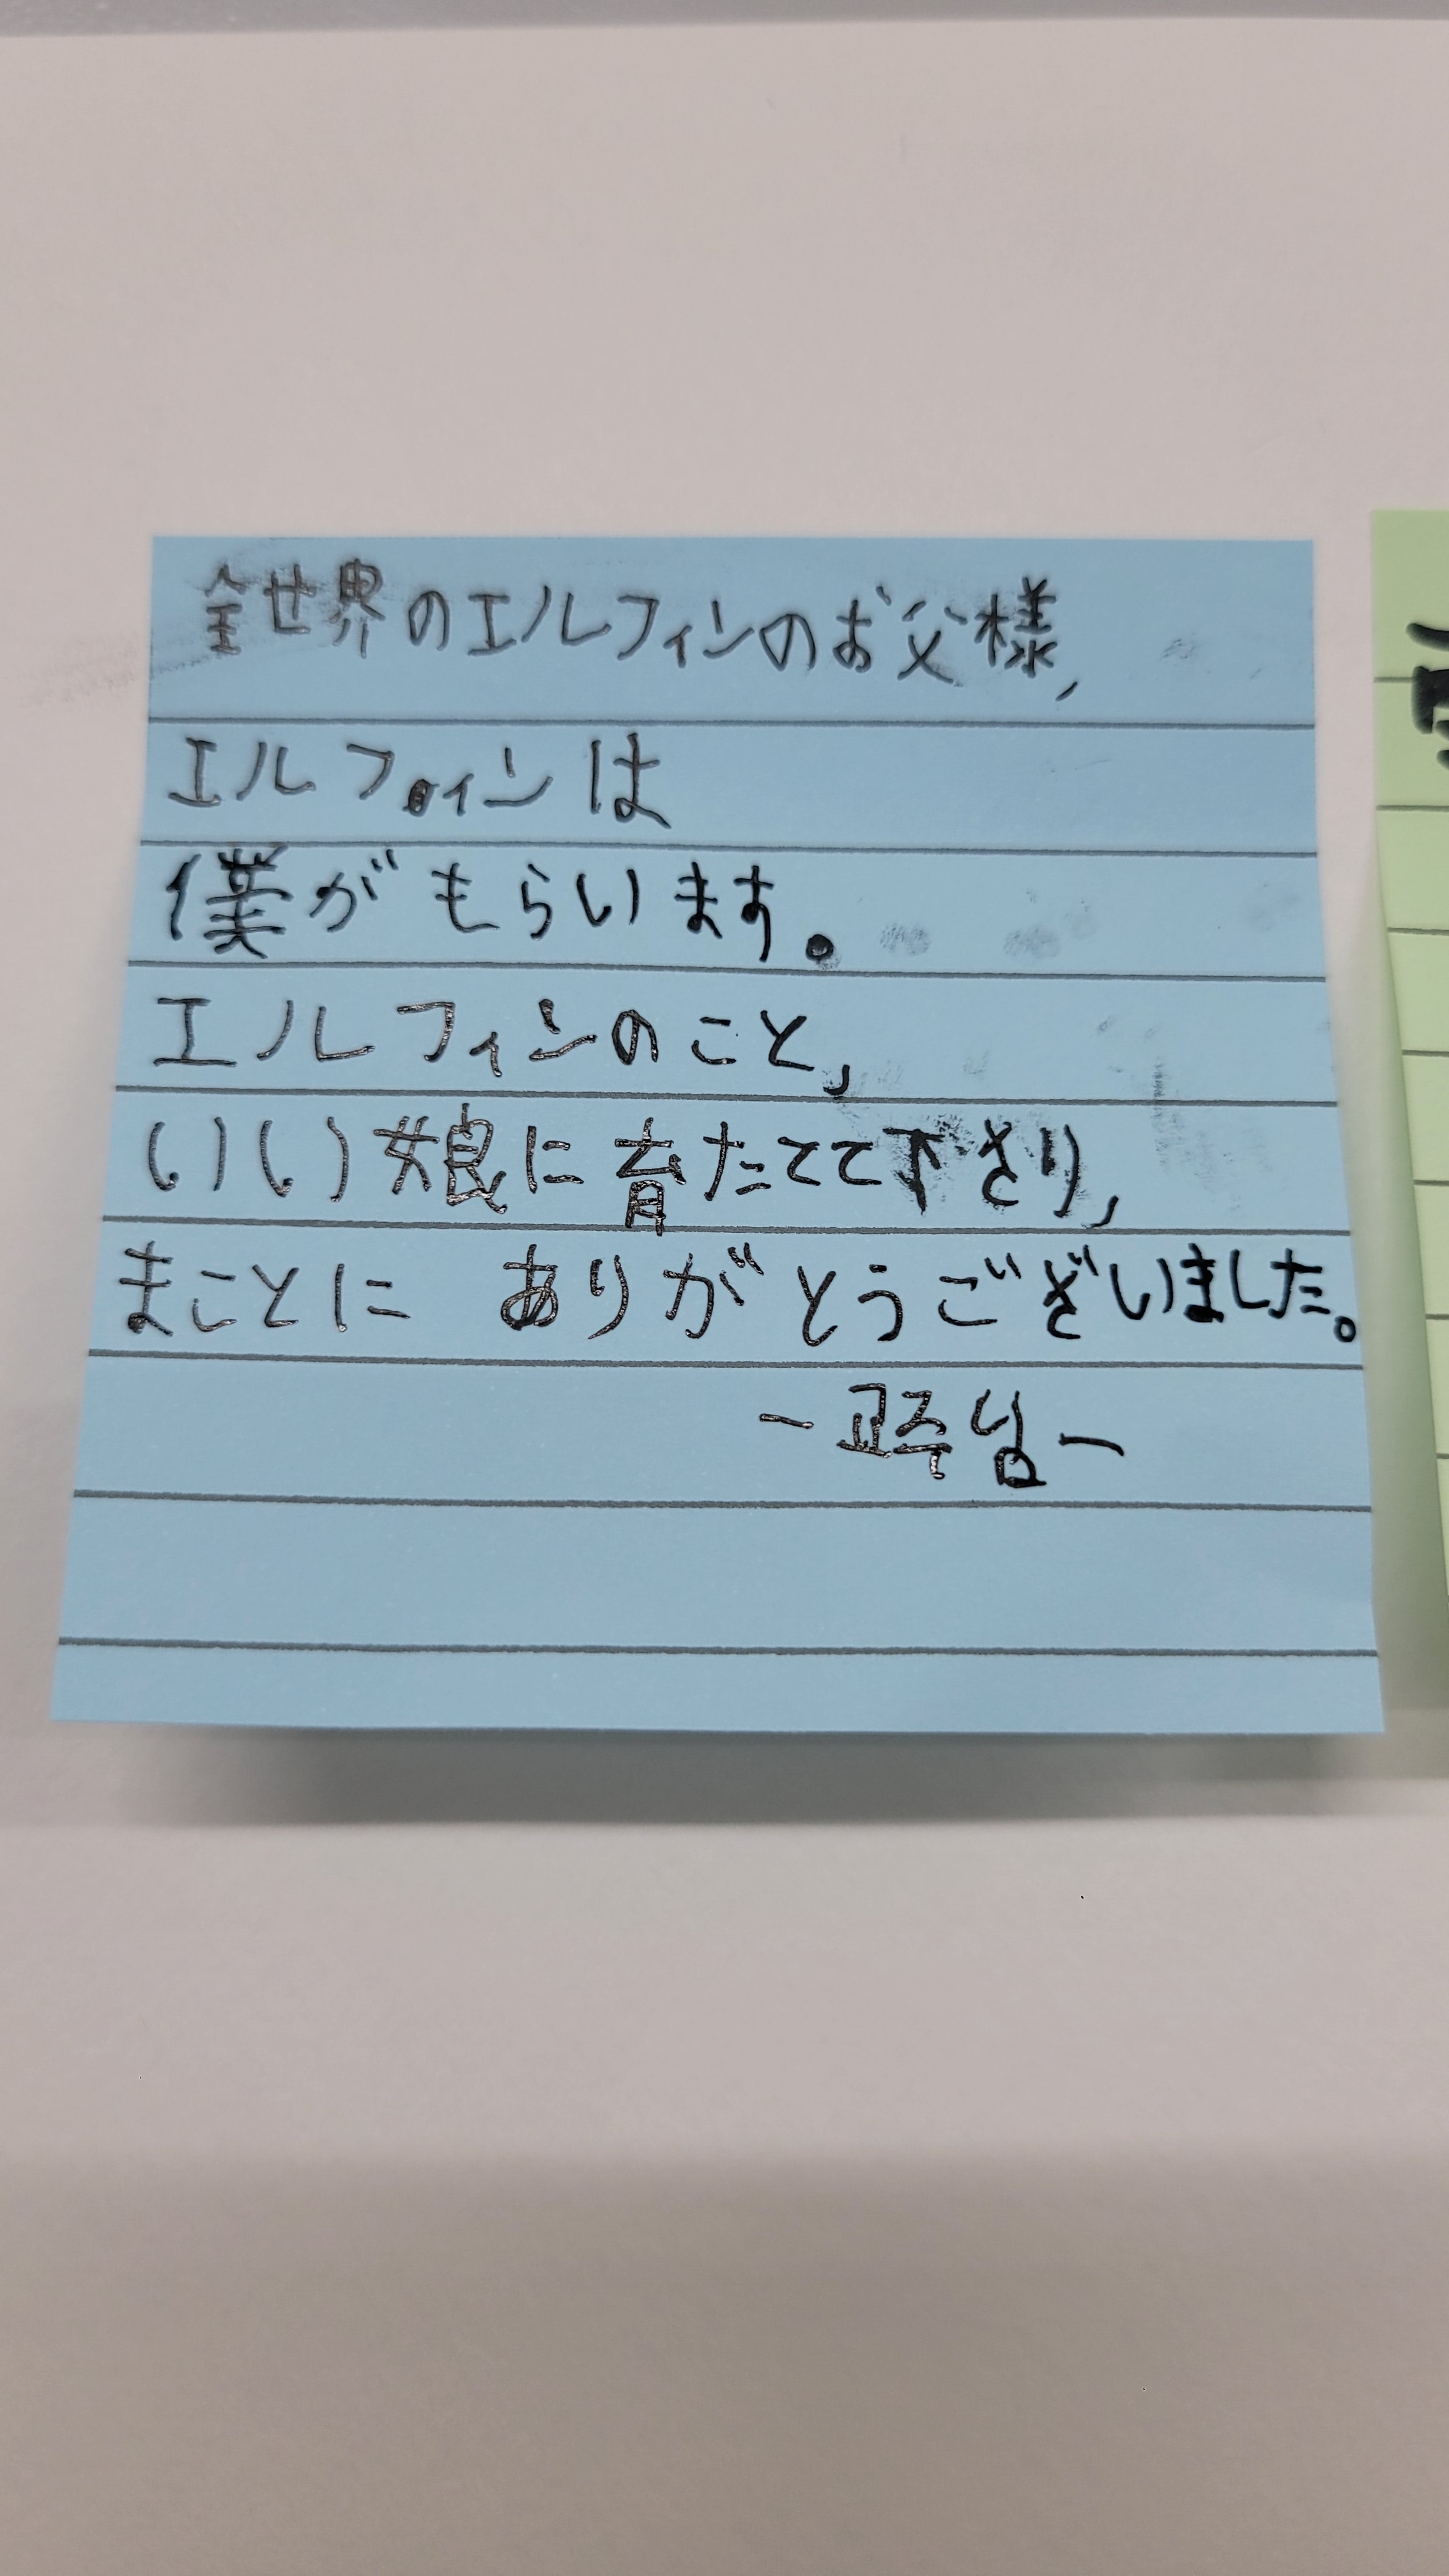 全世界のエルフィンのお父様,
エルフィンは
僕がもらいます。
エルフィンのこと,
いい娘に育たてて下さり,
まことに ありがとうございました。